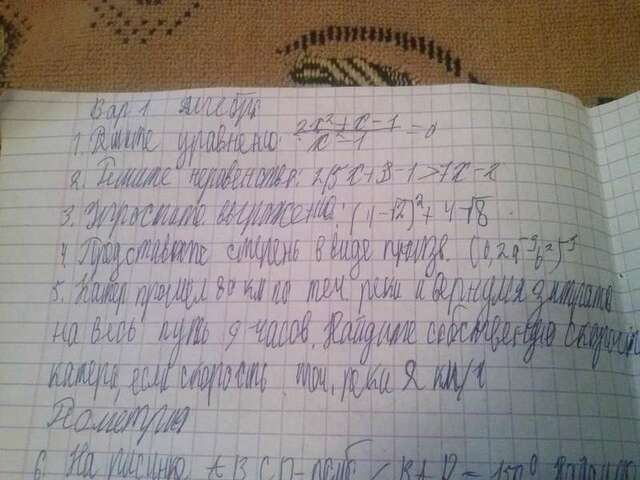 Вар 1 Алгебра
1. Решите уравнено: 2x²+x-1/x-1=0
2. Решите неравенства: 2,5x+3-1>7x-2
3. Упростите выражено: (4-√2)²+4√8.
4. Представьте степень в виде произв. (0,2a⁻³b²)⁻³
5. Катер прошел 80 км по теч. реки и вернулся затратив
на весь путь 9 часов. Найдите собственную скорость
катера, если скорость теч. реки 2 км/ч
Геометрия
6. На рисунке ABCD-ромб ∠BAD=150°